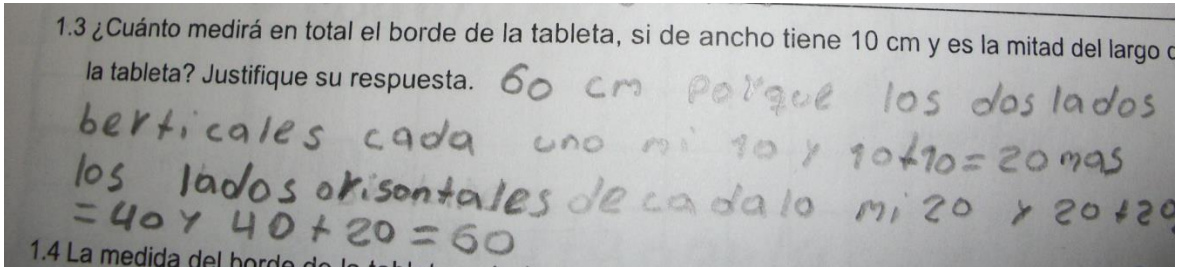 1.3 ¿Cuánto medirá en total el borde de la tableta, si de ancho tiene 10 cm y es la mitad del largo d
la tableta? Justifique su respuesta. 60 cm porque los dos lados
berticales cada uno mi 10 y 10+10=20 mas
los lados orisontales de cada lo mi 20 y 20+20
=40 y 40+20=60
1.4 La medida del borde de la